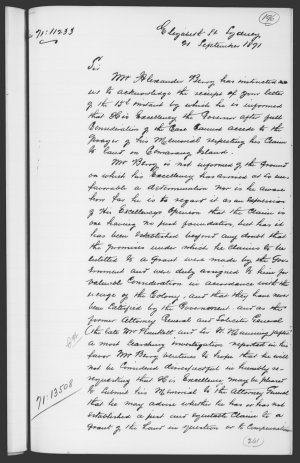 196
71:11233
Elizabeth St Sydney
21 September 1871
Sir
Mr Alexander Berry has instructed
us to acknowledge the receipt of your letter
of the 15th instant by which he is informed
that His Excellency the Governor after full
Consideration of the Case Cannot accede to the
Prayer of his Memorial respecting his Claim
to Land on Comarong Island.
Mr Berry is not informed of the Ground
on which his Excellency has arrived at so un-
favorable a determination nor is he aware
how far he is to regard it as an expression
of His Excellency's Opinion that the Claim is
one having no just foundation, but has it
has been established beyond any doubt that
the promises under which he Claims to be
entitled to a Grant were made by the Gov-
ernment and were duly assigned to him for
valuable Consideration in accordance with the
usage of the Colony, and that they have never
been Satisfied by the Government and as the
former Attorney General and Solicitor General
(the late Mr Plunkett and Sir W. Manning) after
a most searching investigation reported in his
favor Mr Berry ventures to hope that he will
not be Considered disrespectful in humbly re-
requesting that His Excellency may be pleased
to submit his Memorial to the Attorney General
that he may advise whether he has or has not
established a just and equitable Claim to a
Grant of the Land in question or to Compensation
71:13508
241